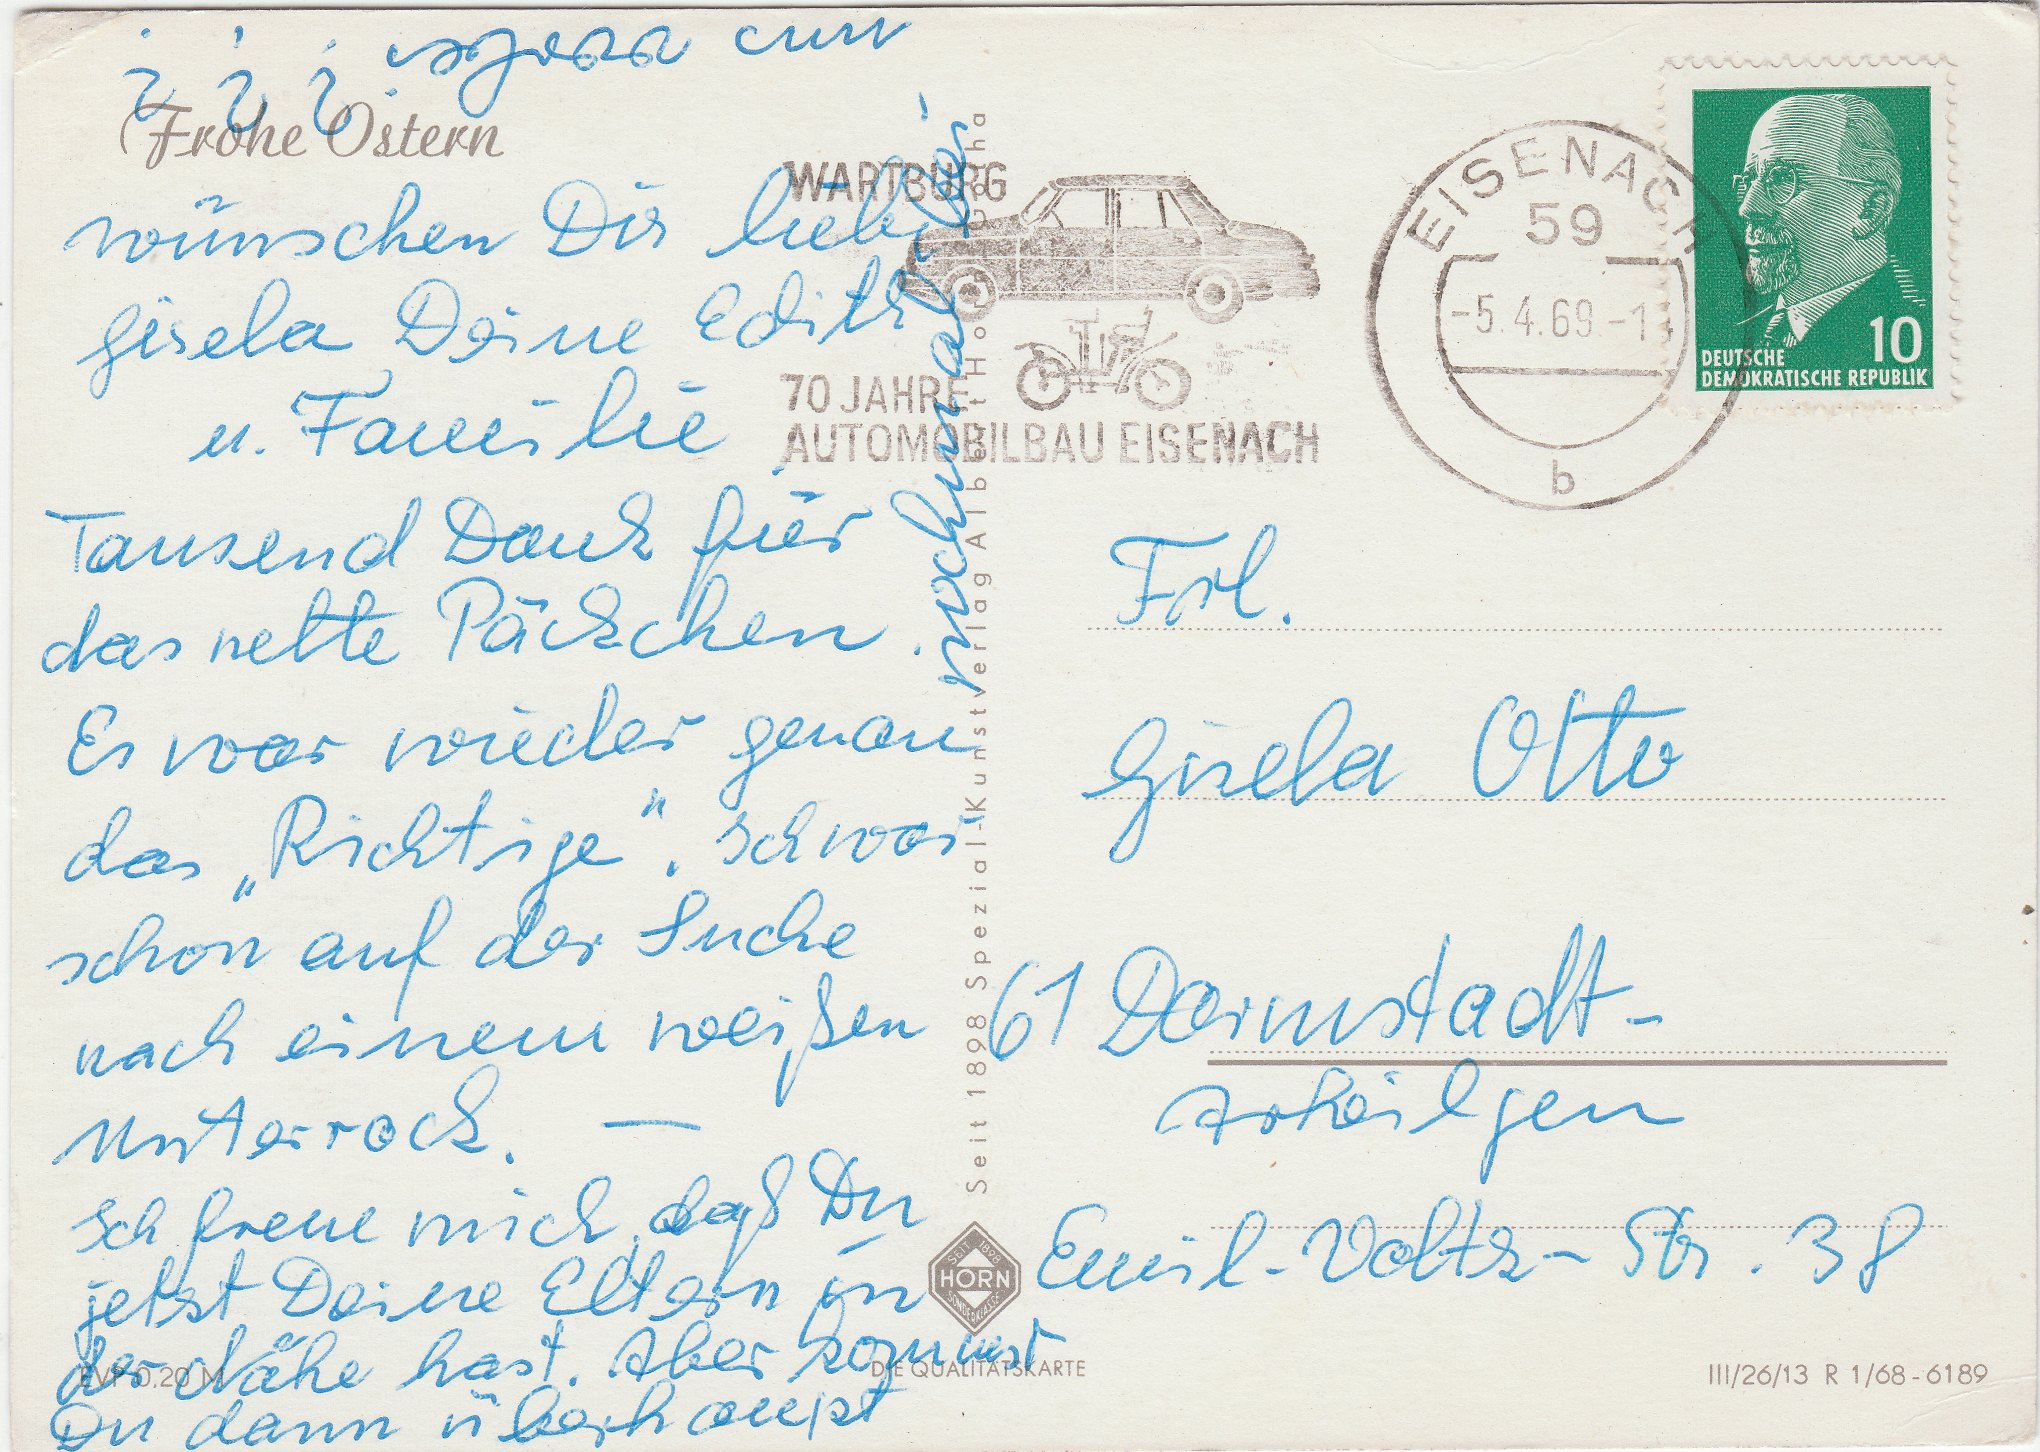 Frohe Ostern
wünschen Dir liebe
Gisela Deine Edith
u. Familie.
Tausend Dank für
das nette Päckchen.
Es war wieder genau
das „Richtige". Ich war
schon auf der Suche
nach einem weißen
Unterrock. —
Ich freue mich, daß Du
jetzt Deine Eltern in
der Nähe hast. Aber kommst
Du dann überhaupt
nochmal bei
uns vorbei ???
EVP 0.20 M
Seit 1898 Spezial-Kunstverlag Albert Horn Gotha
SEIT 1898
HORN
SONDERKLASSE
DIE QUALITÄTSKARTE
WARTBURG
70 JAHRE
AUTOMOBILBAU EISENACH
EISENACH
59
-5.4.69.-1
b
10
DEUTSCHE
DEMOKRATISCHE REPUBLIK
Frl.
Gisela Otto
61 Darmstadt-
Arheilgen
Emil-Voltz-Str. 38
III/26/13 R 1/68-6189